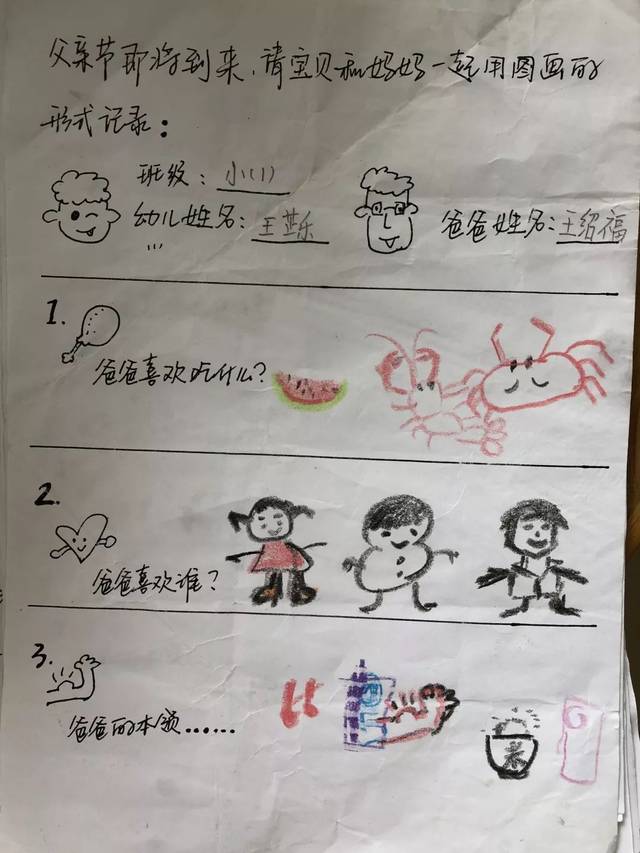 父亲节即将到来，请宝贝和妈妈一起用图画的
形式记录：
班级：小(1)
幼儿姓名：王芷乐
爸爸姓名：王绍福
1.
爸爸喜欢吃什么？
2.
爸爸喜欢谁？
3.
爸爸的本领……
米